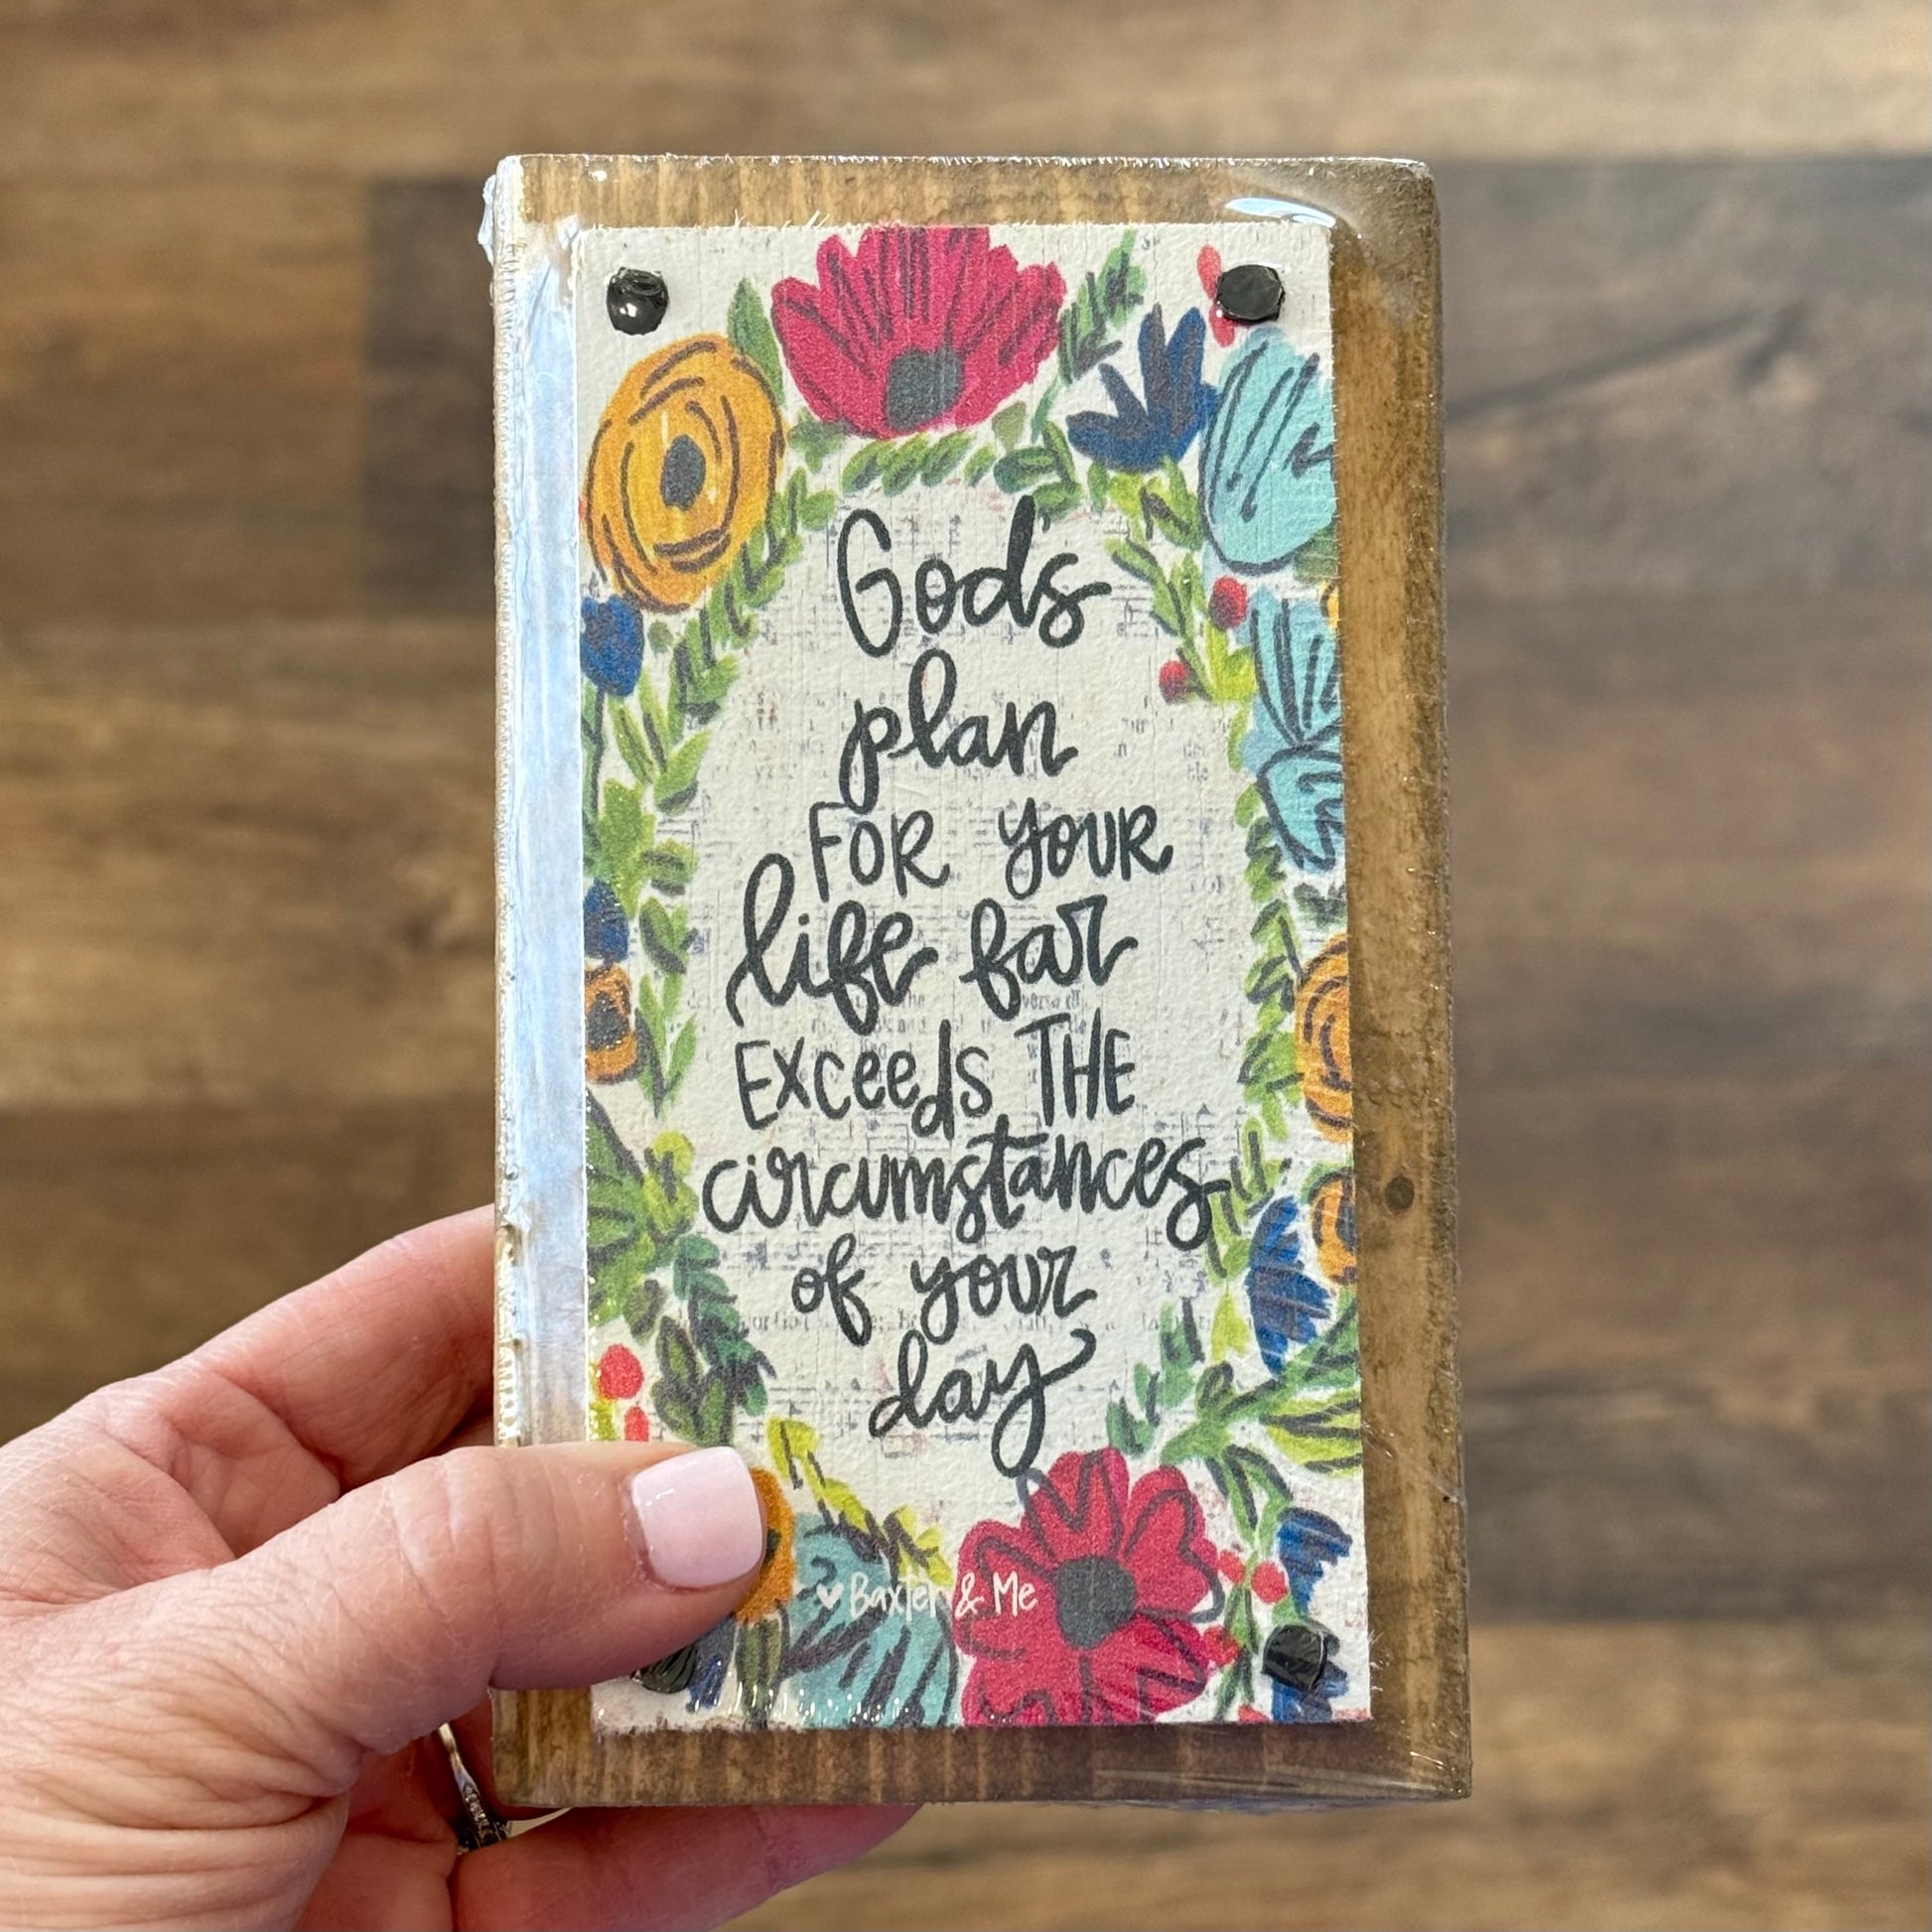 God's
plan
FOR YOUR
life far
Exceeds THE
circumstances
of your
day
Baxter & Me